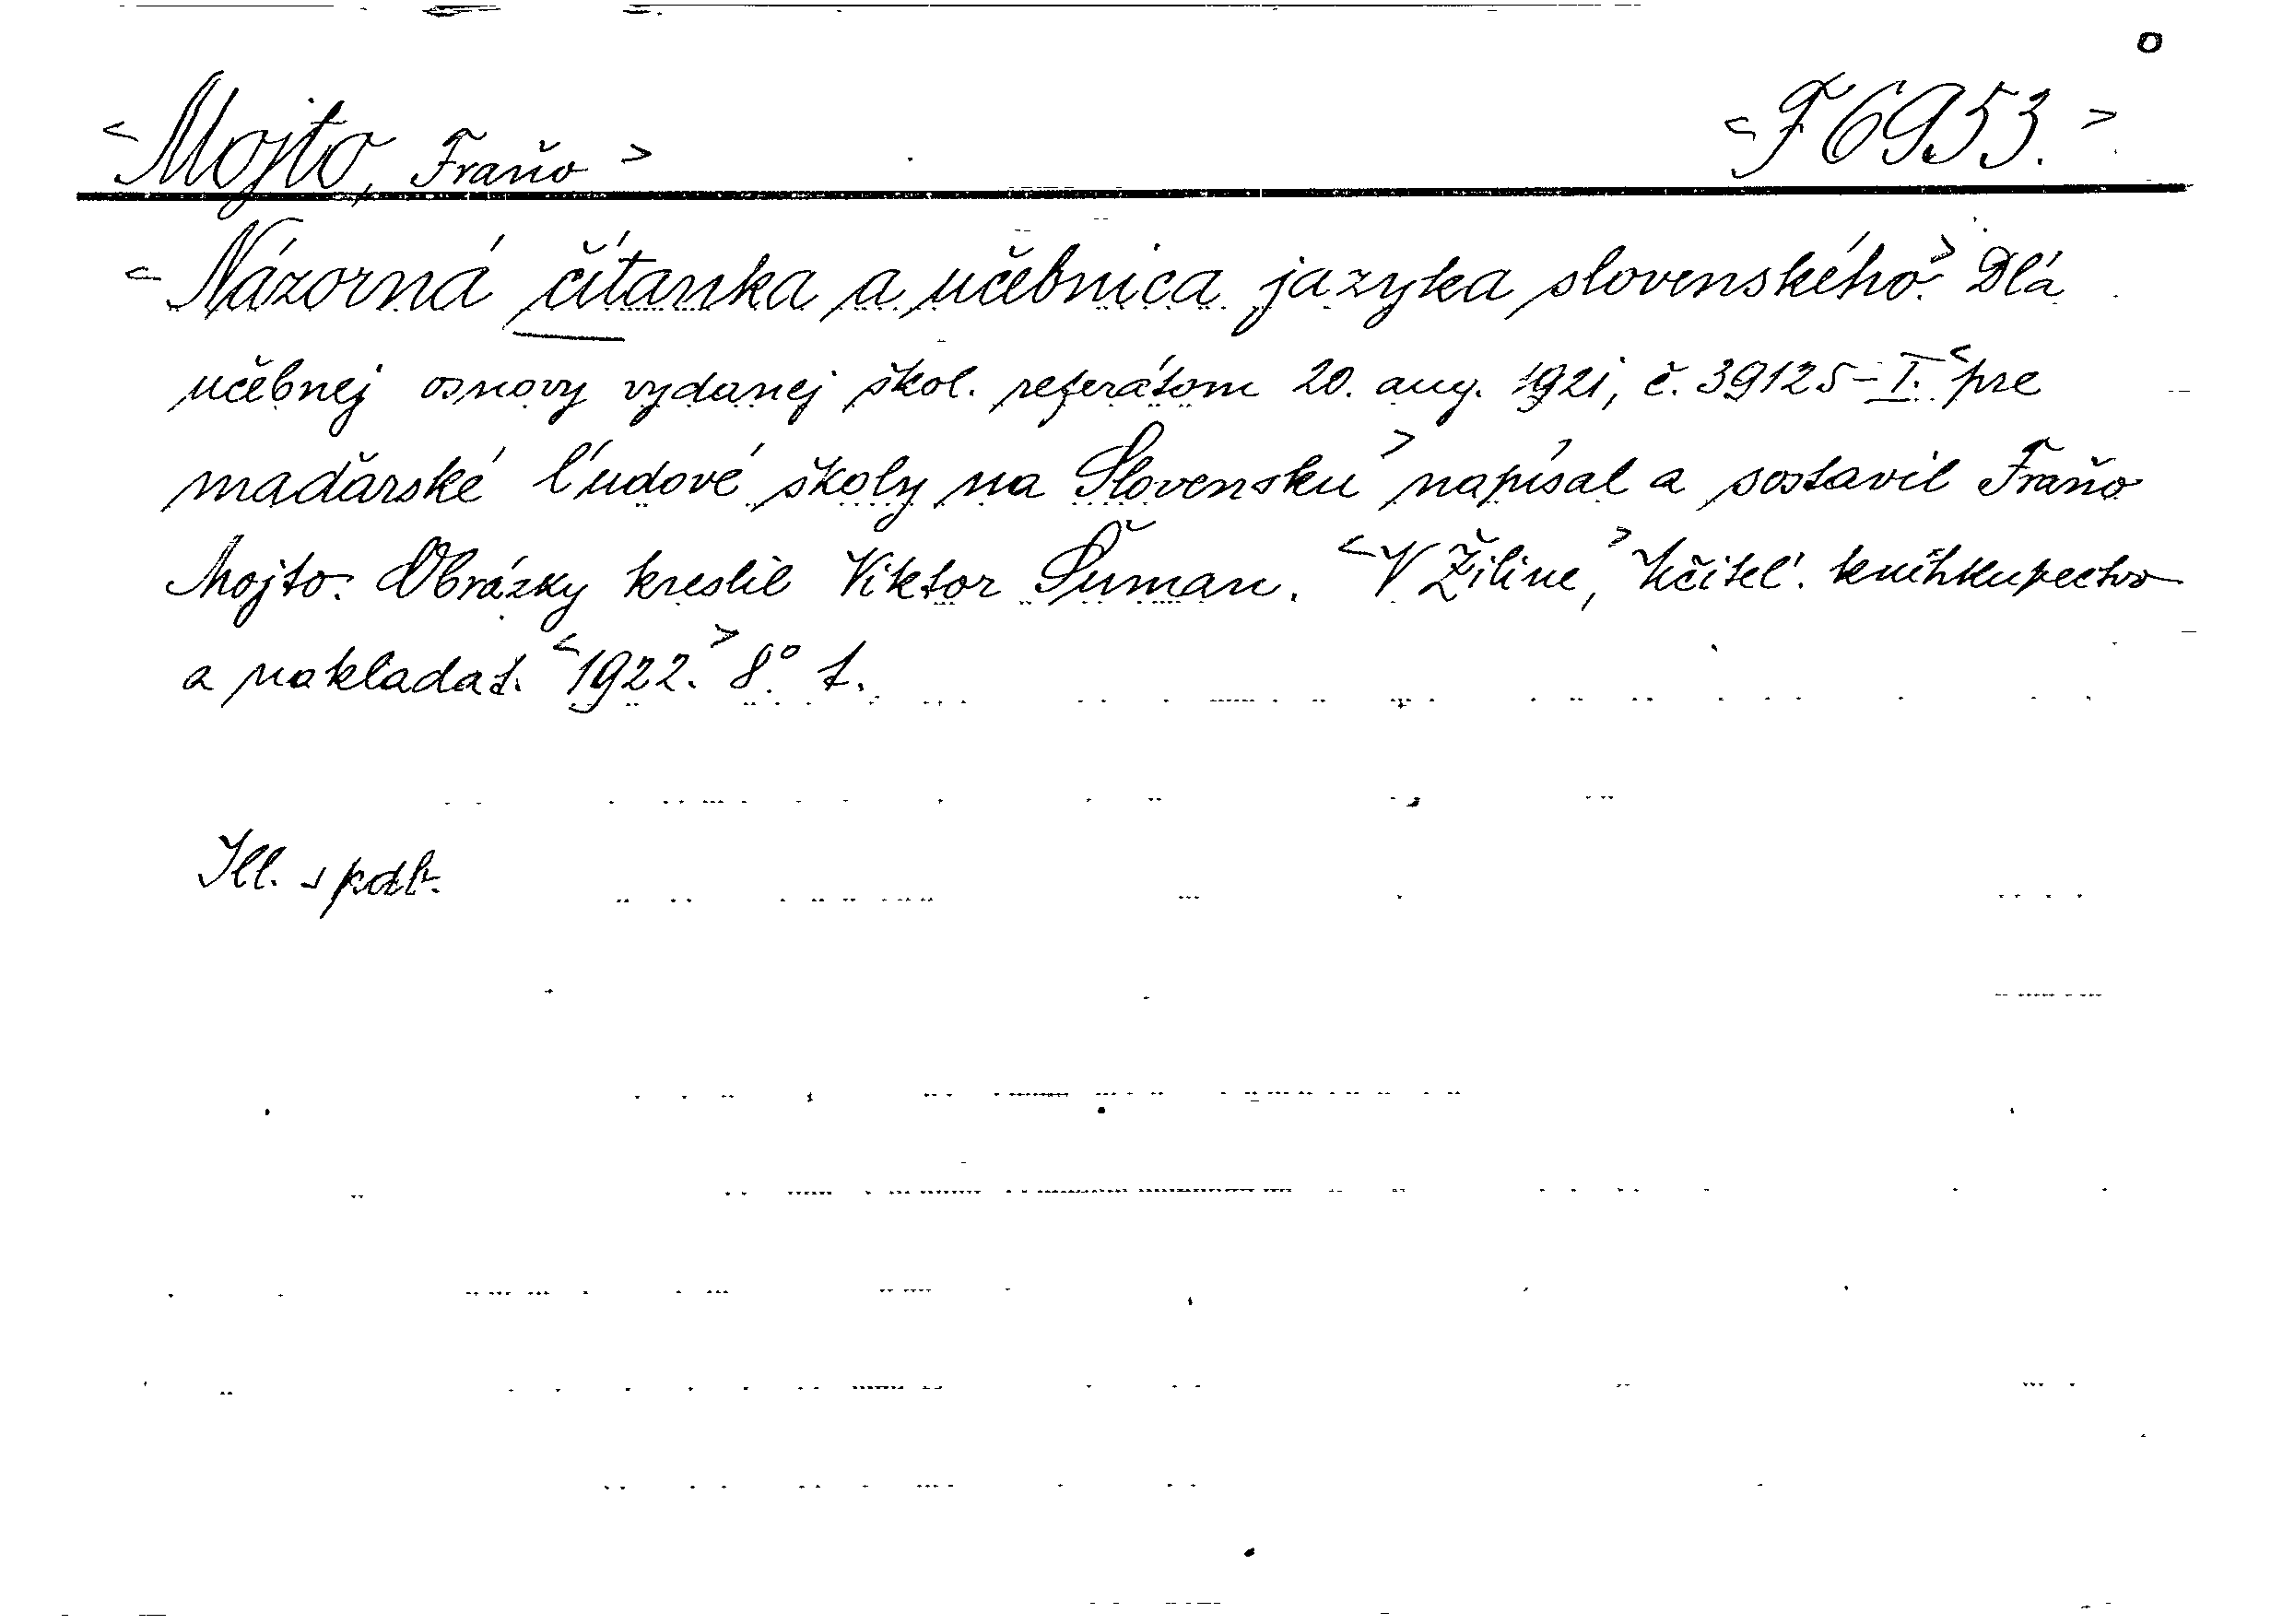 o
<Mojto, Fraňo> <F 6953.>
<Názorná čítanka a učebnica jazyka slovenského.> Dľa
učebnej osnovy vydanej škol. referátom 20. aug. 1921, č. 39125-I. <pre
maďarské ľudové školy na Slovensku> napísal a sostavil Fraňo
Mojto. Obrázky kreslil Viktor Šuman. <V Žiline,> Učiteľ. kníhkupectvo
a nakladat. <1922.> 8°
Ill.